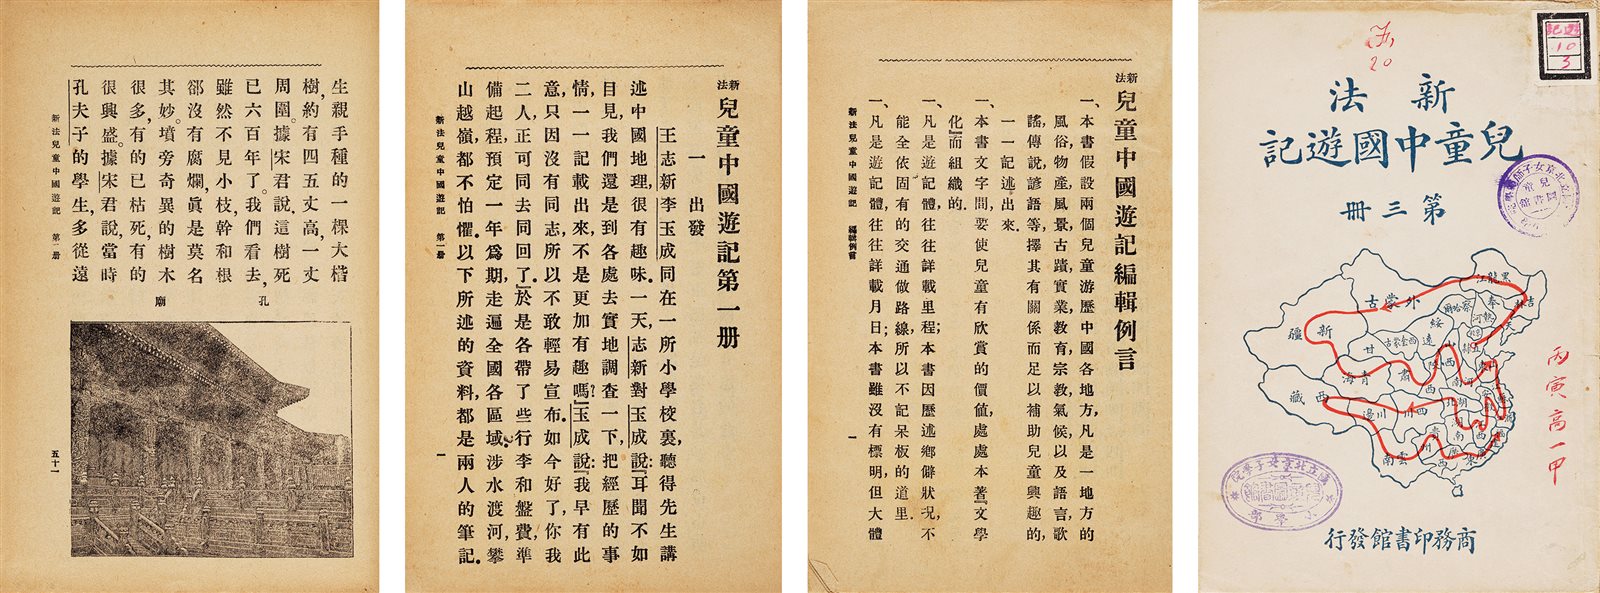 新法
兒童中國遊記
第三冊
遊記
10
3
20
黑龍江
吉林
奉天
外蒙古
察哈爾
熱河
綏遠
新疆
西套蒙古
甘肅
山西
陝西
河南
青海
西藏
川邊
四川
湖北
湖南
貴州
雲南
廣西
廣東
丙寅高一甲
小學部
商務印書館發行
新法兒童中國遊記編輯例言
一、本書假設兩個兒童游歷中國各地方,凡是一地方的
風俗,物產,風景,古蹟,實業,教育,宗教,氣候以及語言,歌
謠,傳說,諺語等,擇其有關係而足以補助兒童興趣的,
一一記述出來.
一、本書文字間,要使兒童有欣賞的價値,處處本著『文學
化』而組織的.
一、凡是遊記體,往往詳載里程;本書因歷述鄉僻狀況,不
能全依固有的交通做路線,所以不記呆板的道里.
一、凡是遊記體,往往詳載月日;本書雖沒有標明,但大體
新法兒童中國遊記 編輯例言
一
新法兒童中國遊記第一册
一 出發
王志新李玉成同在一所小學校裏,聽得先生講
述中國地理,很有趣味.一天,志新對玉成說:『耳聞不如
目見,我們還是到各處去實地調查一下,把經歷的事
情,一一記載出來,不是更加有趣嗎?』玉成說:『我早有此
意,只因沒有同志,所以不敢輕易宣布.如今好了,你我
二人,正可同去同回了.』於是各帶了些行李和盤費,準
備起程,預定一年爲期,走遍全國各區域.涉水渡河,攀
山越嶺,都不怕懼.以下所述的資料,都是兩人的筆記.
新法兒童中國遊記 第一册
一
生親手種的一棵大楷
樹,約有四五丈高,一丈
周圍.據宋君說,這樹死
已六百年了.我們看去,
雖然不見小枝,幹和根
卻沒有腐爛,眞是莫名
其妙.墳旁奇異的樹木
很多,有的已枯死,有的
很興盛.據宋君說,當時
孔夫子的學生,多從遠
孔廟
新法兒童中國遊記 第一册
五十一